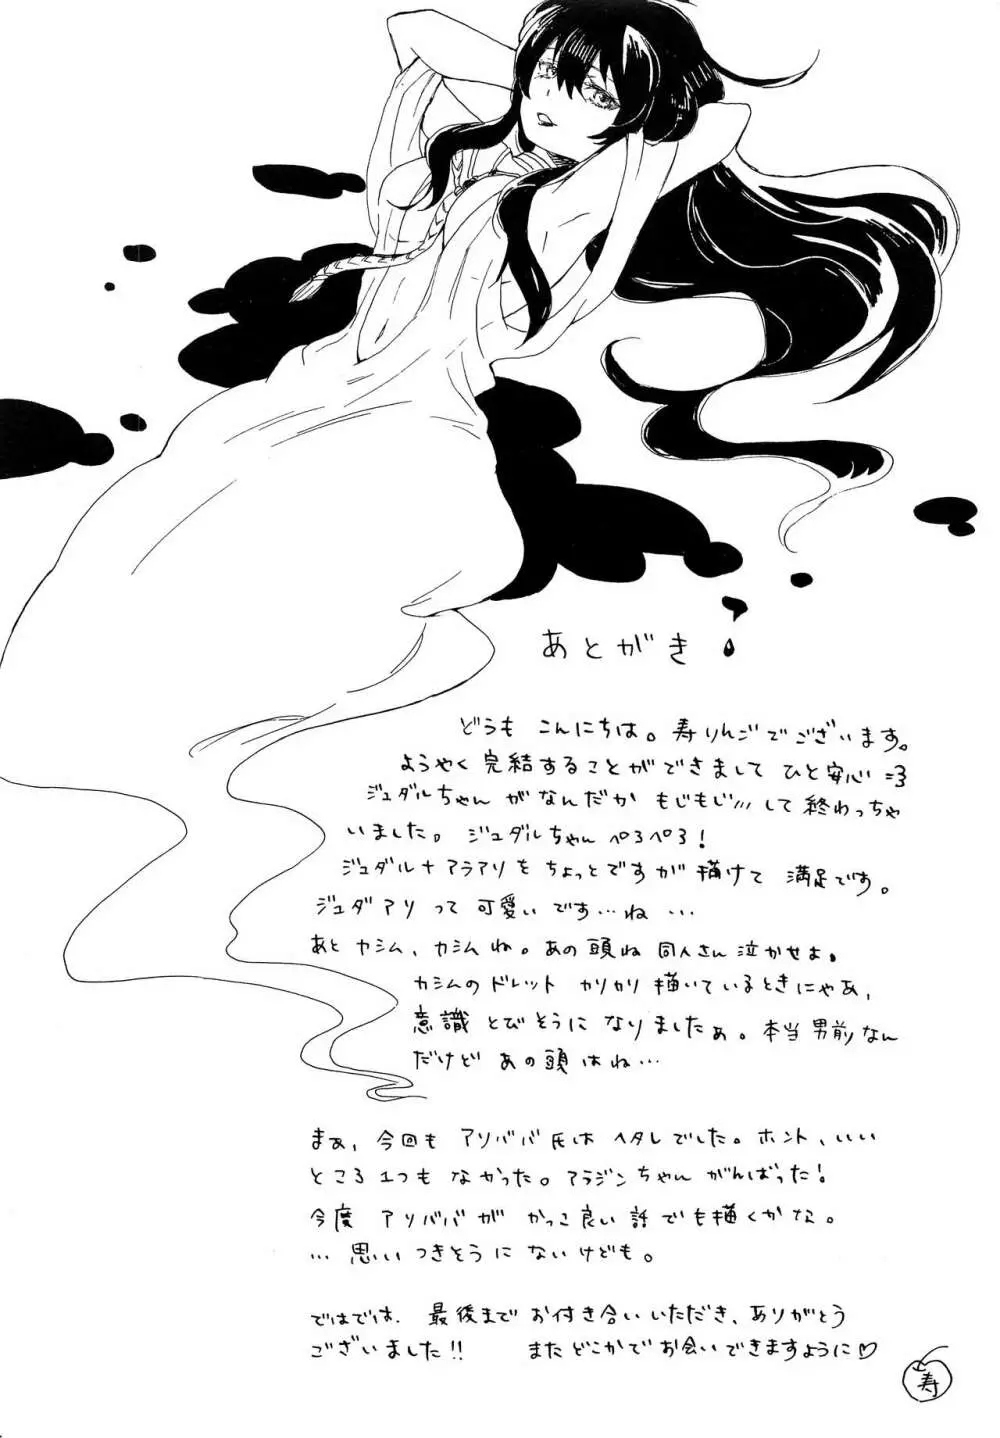 あとがき
どうも こんにちは。寿りんごでございます。
ようやく 完結することができまして ひと安心 =3
ジュダルちゃん がなんだか もじもじ/// して 終わっちゃ
いました。ジュダルちゃん ぺろぺろ!
ジュダル+アラアリを ちょっとですが 描けて 満足です。
ジュダアリ って 可愛い です…ね …
あと カシム、カシムね。あの頭ね 同人さん 泣かせよ。
カシムの ドレット カリカリ 描いているときにゃあ、
意識 とびそうに なりましたぁ。本当 男前 なん
だけど あの頭 はね…
まぁ、今回も アリババ氏は ヘタレでした。ホント、いい
ところ 1つも なかった。アラジンちゃん がんばった!
今度 アリババが かっこ良い 話 でも 描くかな。
… 思い つきそうに ないけども。
ではでは、最後まで お付き合い いただき、ありがとう
ございました!! また どこかで お会い できますように♡
寿